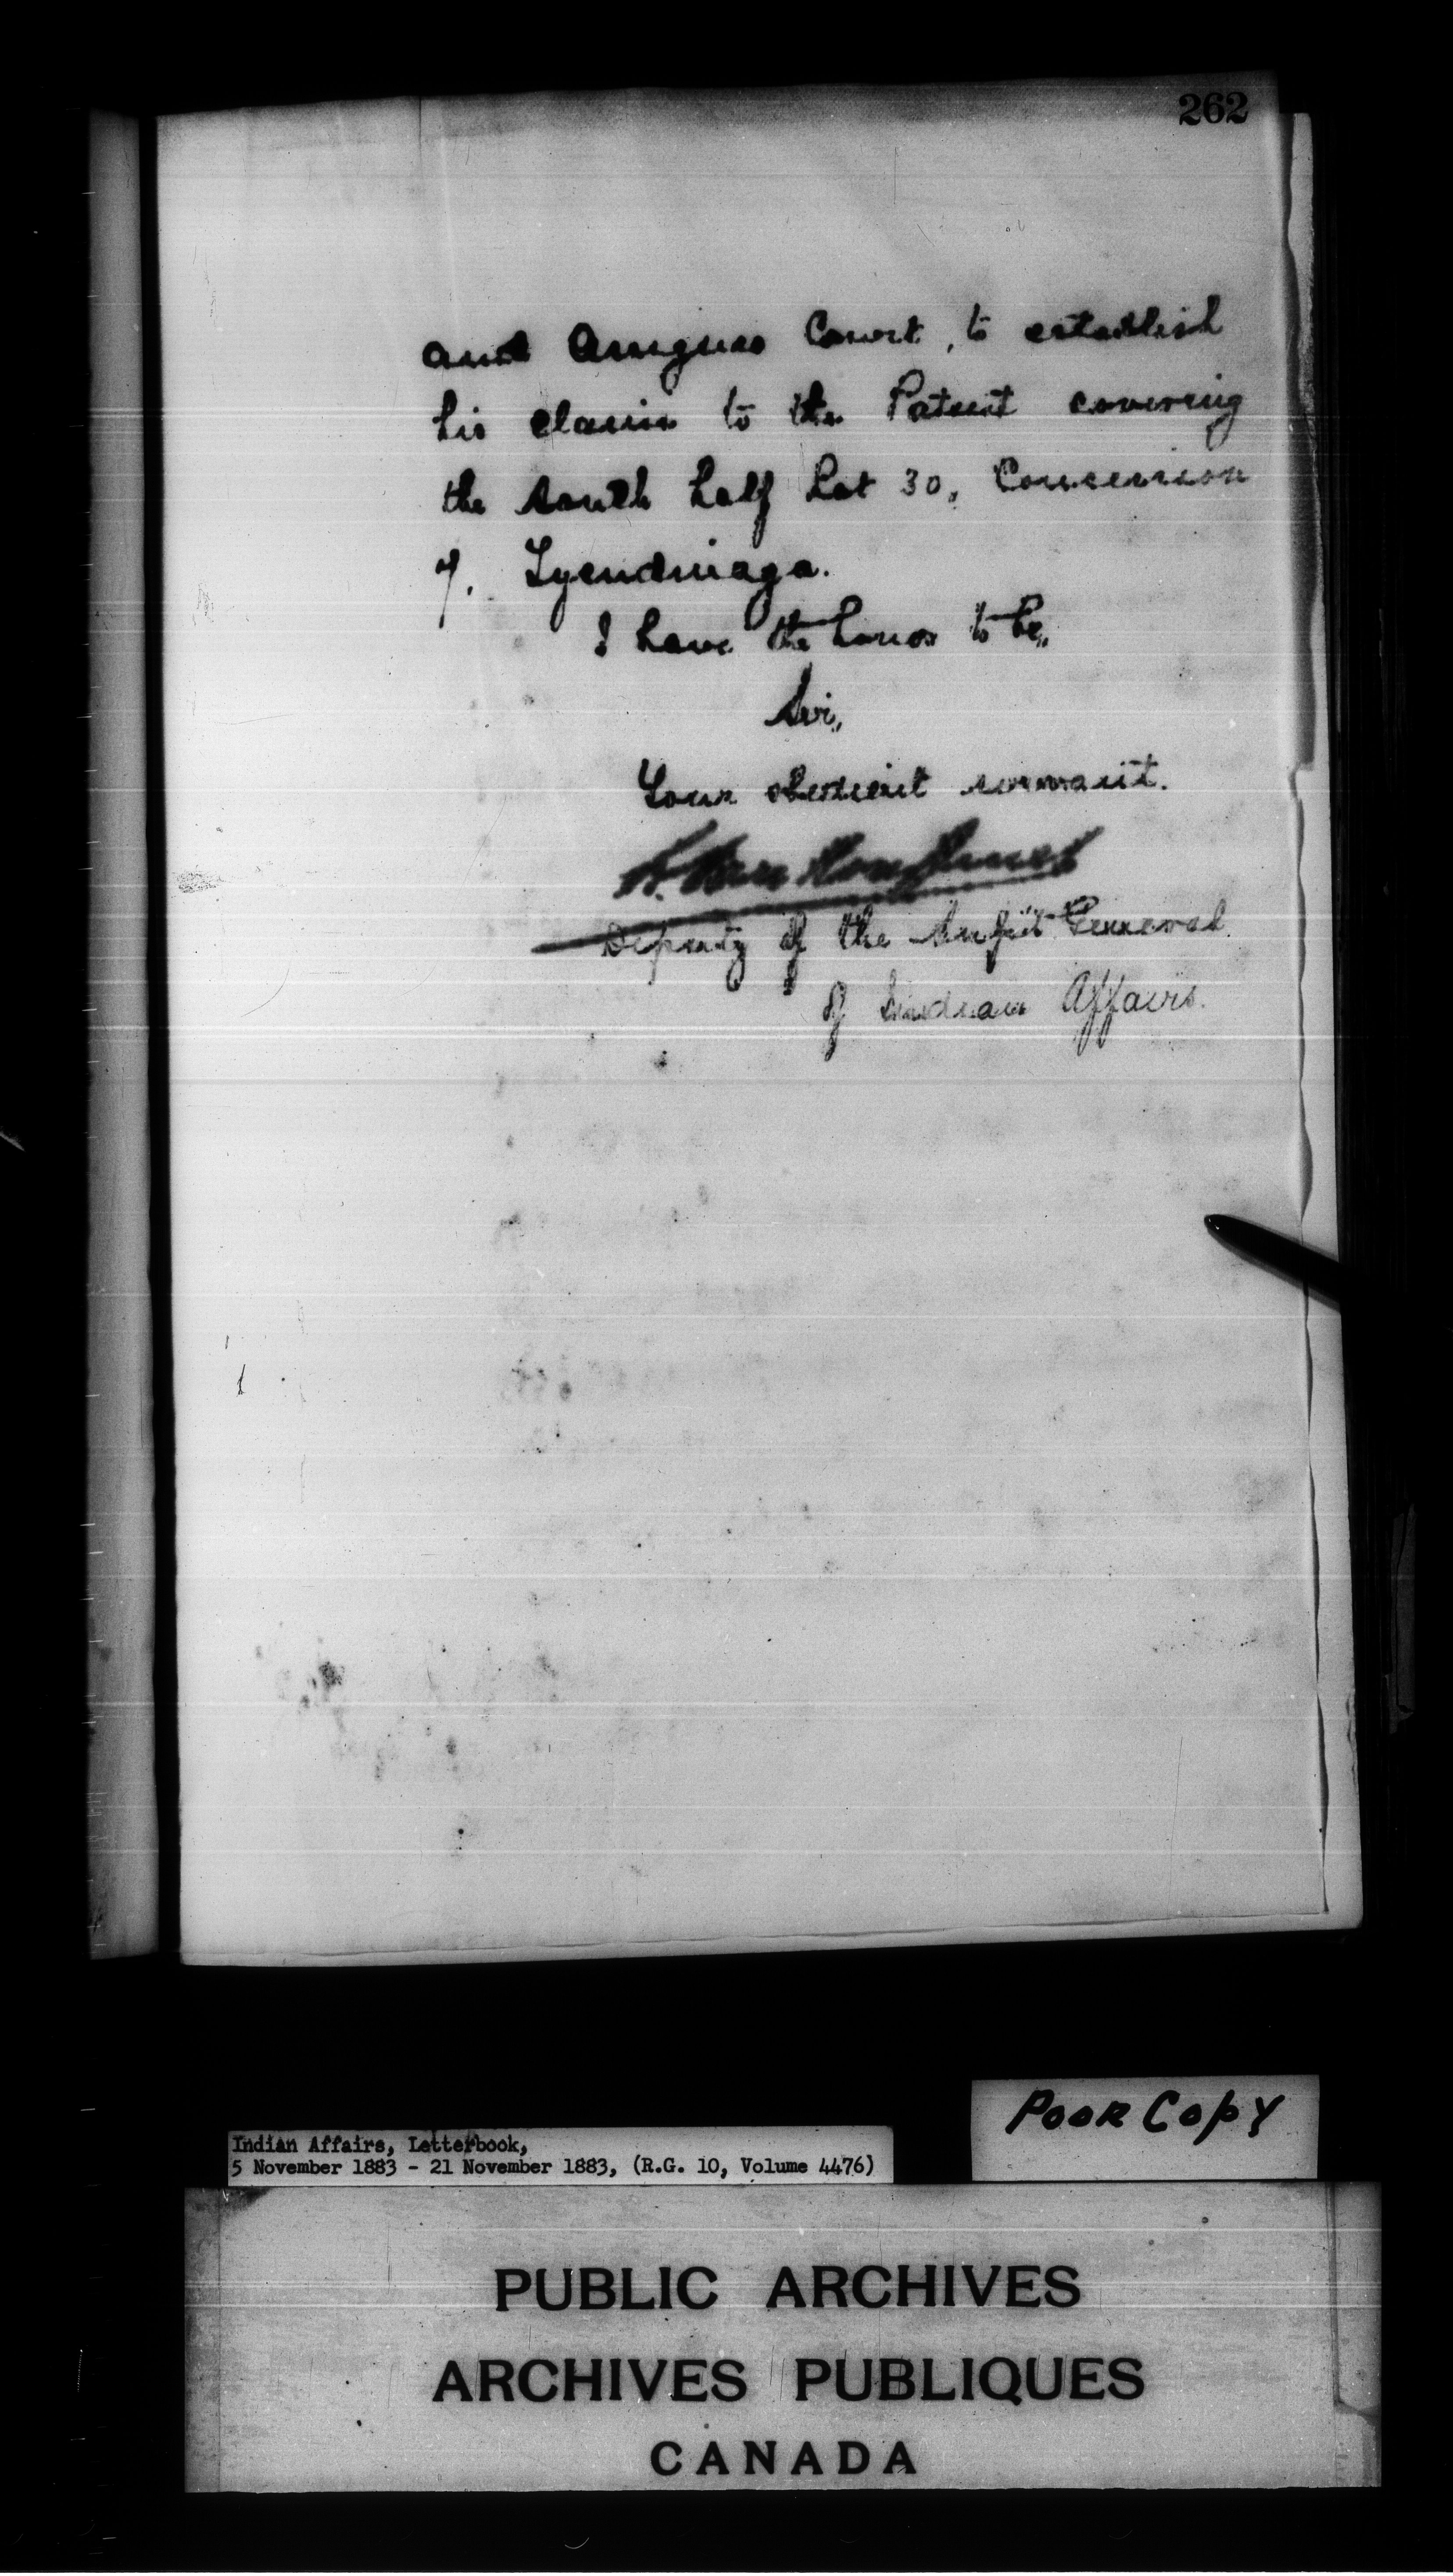 262
and Amguss Court, to establish
his claim to the Patent covering
the South half Lot 30, Concession
7. Tyendinaga.
I have the honor to be,
Sir,
Your obedient servant.
L. Van Koughnet
Deputy of the Supt General
of Indian Affairs.
POOR COPY
Indian Affairs, Letterbook,
5 November 1883 - 21 November 1883, (R.G. 10, Volume 4476)
PUBLIC ARCHIVES
ARCHIVES PUBLIQUES
CANADA